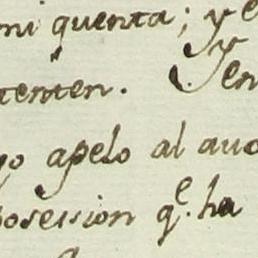 mi quenta; ye
tenten. Yen
yo apelo al auc
posession qe. ha